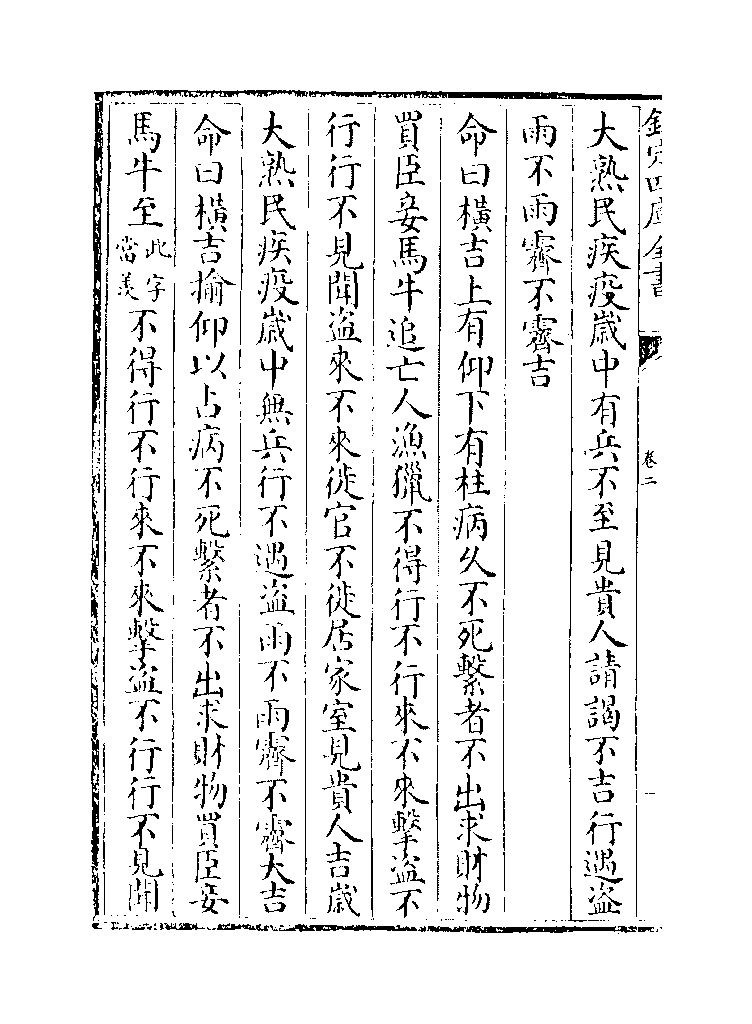 欽定四庫全書
卷二
大熟民疾疫嵗中有兵不至見貴人請謁不吉行遇盗
雨不雨霽不霽吉
命曰橫吉上有仰下有柱病久不死繫者不出求財物
買臣妾馬牛追亡人漁獵不得行不行來不來擊盗不
行行不見聞盗來不來徙官不徙居家室見貴人吉嵗
大熟民疾疫嵗中無兵行不遇盗雨不雨霽不霽大吉
命曰橫吉揄仰以占病不死繫者不出求財物買臣妾
馬牛至此字當羨不得行不行來不來擊盗不行行不見聞